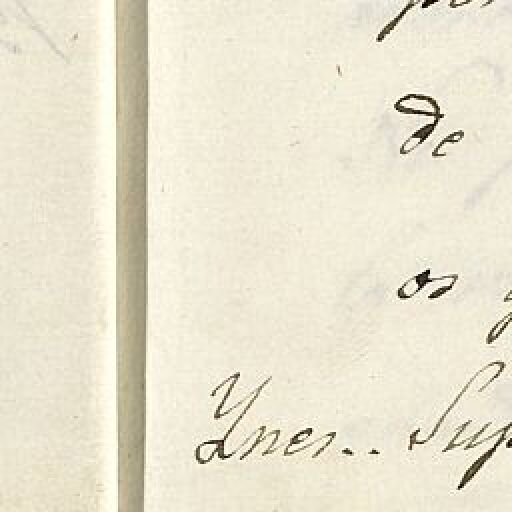 de
os
Ynes.. Sup